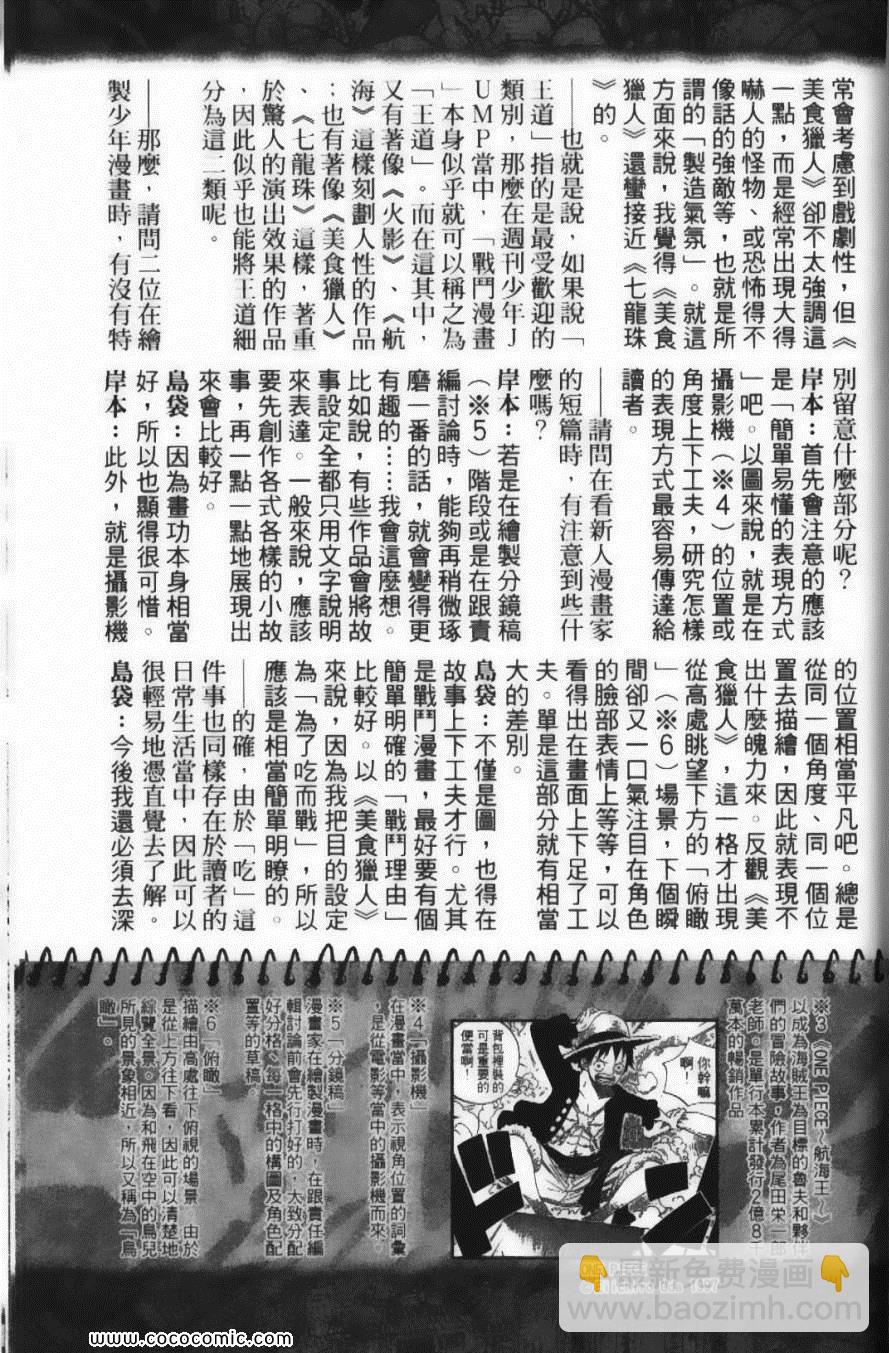 常會考慮到戲劇性，但《
美食獵人》卻不太強調這
一點，而是經常出現大得
嚇人的怪物、或恐怖得不
像話的強敵等，也就是所
謂的「製造氣氛」。就這
方面來說，我覺得《美食
獵人》還蠻接近《七龍珠
》的。
——也就是說，如果說「
王道」指的是最受歡迎的
類別，那麼在週刊少年J
UMP當中，「戰鬥漫畫
」本身似乎就可以稱之為
「王道」。而在這其中，
又有著像《火影》、《航
海》這樣刻劃人性的作品
；也有著像《美食獵人》
、《七龍珠》這樣，著重
於驚人的演出效果的作品
，因此似乎也能將王道細
分為這二類呢。
——那麼，請問二位在繪
製少年漫畫時，有沒有特
別留意什麼部分呢？
岸本：首先會注意的應該
是「簡單易懂的表現方式
」吧。以圖來說，就是在
攝影機（※4）的位置或
角度上下工夫，研究怎樣
的表現方式最容易傳達給
讀者。
——請問在看新人漫畫家
的短篇時，有注意到些什
麼嗎？
岸本：若是在繪製分鏡稿
（※5）階段或是在跟責
編討論時，能夠再稍微琢
磨一番的話，就會變得更
有趣的……我會這麼想。
比如說，有些作品會將故
事設定全都只用文字說明
來表達。一般來說，應該
要先創作各式各樣的小故
事，再一點一點地展現出
來會比較好。
島袋：因為畫功本身相當
好，所以也顯得很可惜。
岸本：此外，就是攝影機
的位置相當平凡吧。總是
從同一個角度、同一個位
置去描繪，因此就表現不
出什麼魄力來。反觀《美
食獵人》，這一格才出現
從高處眺望下方的「俯瞰
」（※6）場景，下個瞬
間卻又一口氣注目在角色
的臉部表情上等等，可以
看得出在畫面上下足了工
夫。單是這部分就有相當
大的差別。
島袋：不僅是圖，也得在
故事上下工夫才行。尤其
是戰鬥漫畫，最好要有個
簡單明確的「戰鬥理由」
比較好。以《美食獵人》
來說，因為我把目的設定
為「為了吃而戰」，所以
應該是相當簡單明瞭的。
——的確，由於「吃」這
件事也同樣存在於讀者的
日常生活當中，因此可以
很輕易地憑直覺去了解。
島袋：今後我還必須去深
※3《ONE PIECE～航海王～》
以成為海賊王為目標的魯夫和夥伴
們的冒險故事，作者為尾田榮一郎
老師。是單行本累計發行2億8千
萬本的暢銷作品。
你幹嘛
啊！
背包裡裝的
可是重要的
便當啊！
ドン
※4「攝影機」
在漫畫當中，表示視角位置的詞彙
，是從電影等當中的攝影機而來。
※5「分鏡稿」
漫畫家在繪製漫畫時，在跟責任編
輯討論前會先行打好的，大致分配
好分格、每一格中的構圖及角色配
置等的草稿。
※6「俯瞰」
描繪由高處往下俯視的場景。由於
是從上方往下看，因此可以清楚地
綜覽全景。因為和飛在空中的鳥兒
所見的景象相近，所以又稱為「鳥
瞰」。
最新免費漫画
www.baozimh.com
www.cococomic.com